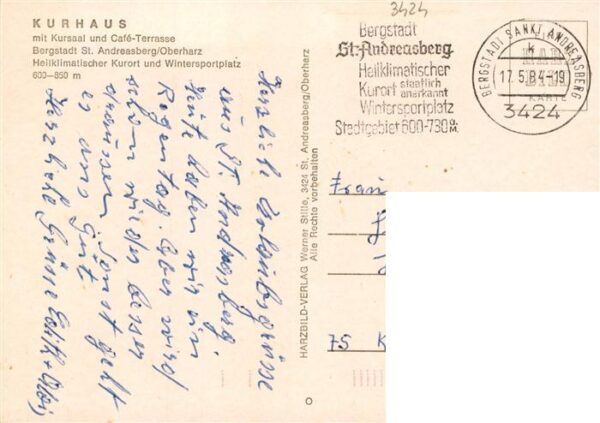 KURHAUS
mit Kursaal und Café-Terrasse
Bergstadt St. Andreasberg/Oberharz
Heilklimatischer Kurort und Wintersportplatz
600–850 m
3424
Bergstadt
St. Andreasberg
Heilklimatischer
Kurort staatlich anerkannt
Wintersportplatz
Stadtgebiet 600-730 ü.M.
BERGSTADT SANKT ANDREASBERG
17.5.84-19
3424
KARTE
Herzliche Urlaubsgrüsse
aus St. Andreasberg.
Heute haben wir ein
Regentag. Aber wird
schon wieder besser
draussen. Sonst geht
es uns gut.
Herzliche Grüsse Edith +
HARZBILD-VERLAG Werner Stille, 3424 St. Andreasberg/Oberharz
Alle Rechte vorbehalten
75 K